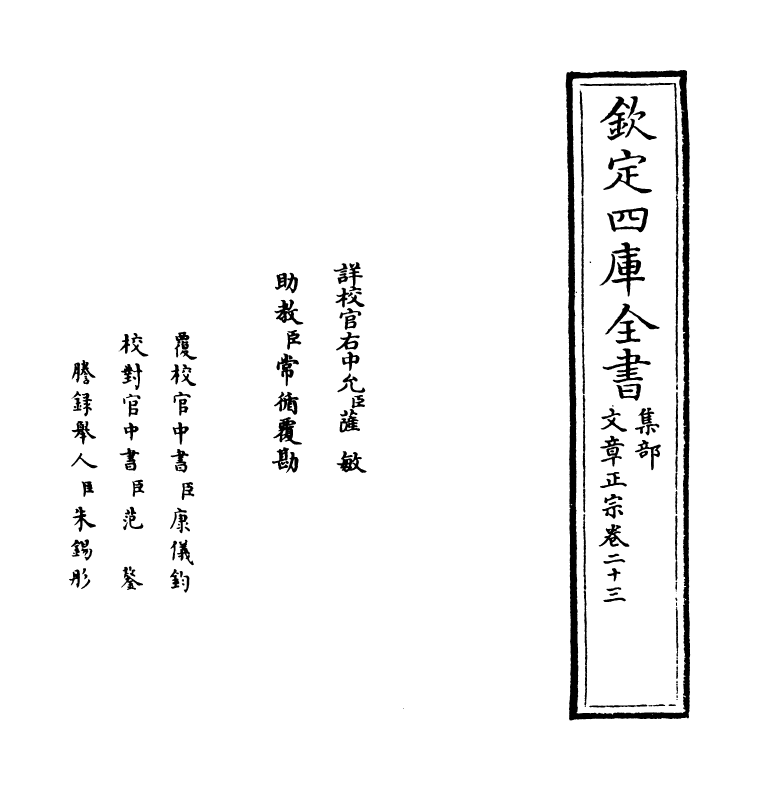 欽定四庫全書
集部
文章正宗卷二十三
詳校官右中允臣薩敏
助教臣常循覆勘
覆校官中書臣康儀鈞
校對官中書臣范鏊
謄錄舉人臣朱錫彤